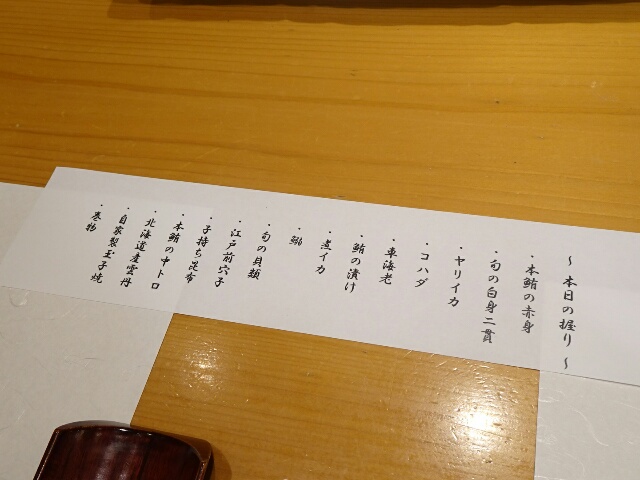 ～本日の握り～
・本鮪の赤身
・旬の白身二貫
・ヤリイカ
・コハダ
・車海老
・鮪の漬け
・煮イカ
・鰯
・旬の貝類
・江戸前穴子
・子持ち昆布
・本鮪の中トロ
・北海道産雲丹
・自家製玉子焼
・巻物